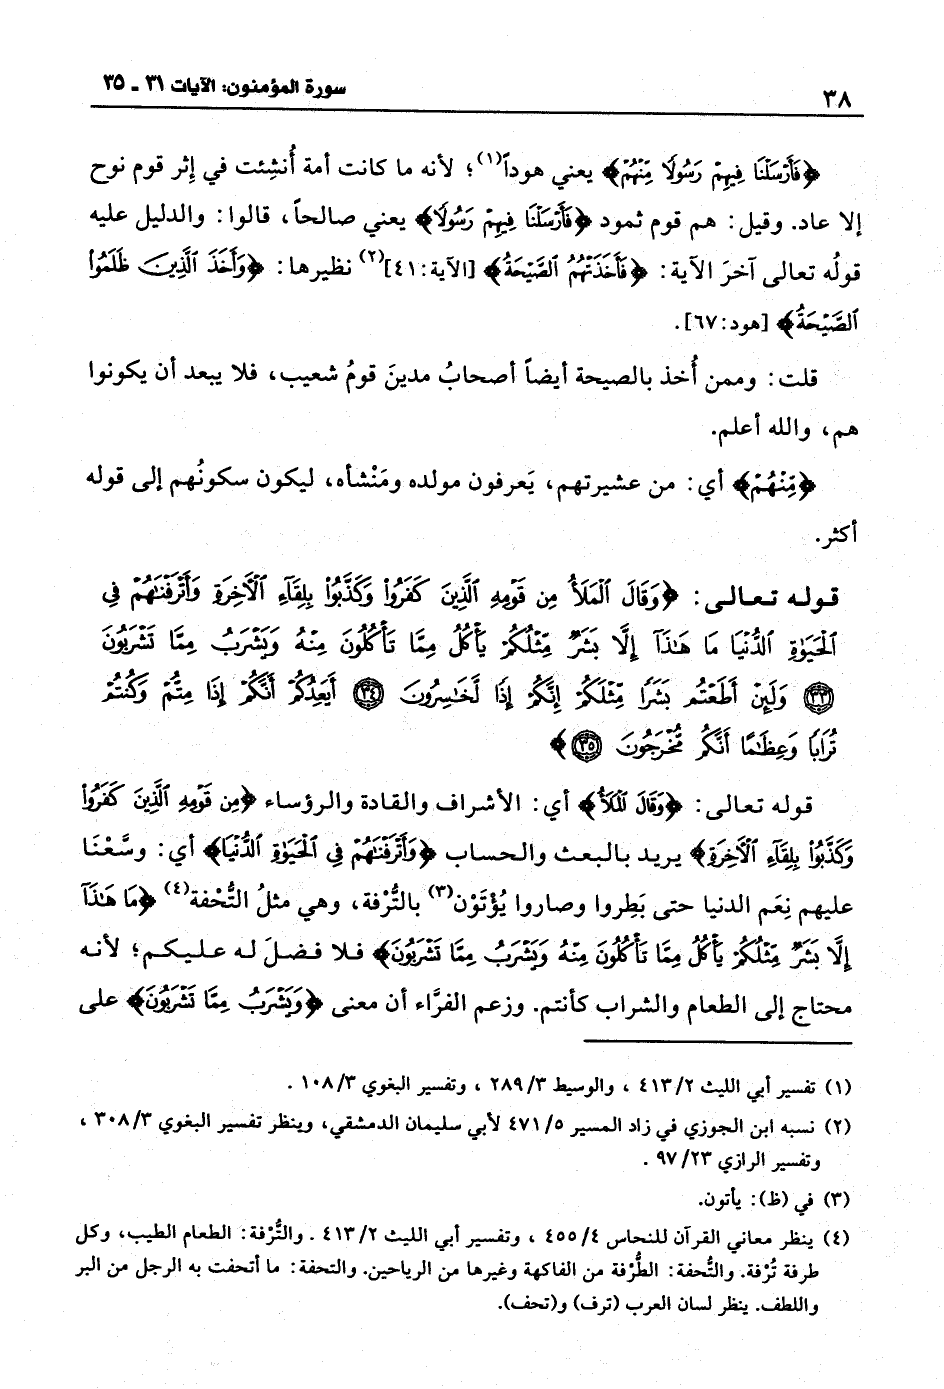 ٣٨
سورة المؤمنون: الآيات ٣١ ـ ٣٥
﴿فَأَرْسَلْنَا فِيهِمْ رَسُولًا مِّنْهُمْ﴾ يعني هوداً(١)؛ لأنه ما كانت أمة أُنشِئت في إثر قوم نوح
إلا عاد. وقيل: هم قوم ثمود ﴿فَأَرْسَلْنَا فِيهِمْ رَسُولًا﴾ يعني صالحاً، قالوا: والدليل عليه
قولُه تعالى آخرَ الآية: ﴿فَأَخَذَتْهُمُ ٱلصَّيْحَةُ﴾ [الآية:٤١](٢) نظيرها: ﴿وَأَخَذَ ٱلَّذِينَ ظَلَمُوا۟
ٱلصَّيْحَةُ﴾ [هود:٦٧].
قلت: وممن أُخذ بالصيحة أيضاً أصحابُ مدينَ قومُ شعيب، فلا يبعد أن يكونوا
هم، والله أعلم.
﴿مِّنْهُمْ﴾ أي: من عشيرتهم، يَعرفون مولده ومَنْشأه، ليكون سكونُهم إلى قوله
أكثر.
قوله تعالى: ﴿وَقَالَ ٱلْمَلَأُ مِن قَوْمِهِ ٱلَّذِينَ كَفَرُوا۟ وَكَذَّبُوا۟ بِلِقَآءِ ٱلْآخِرَةِ وَأَتْرَفْنَٰهُمْ فِى
ٱلْحَيَوٰةِ ٱلدُّنْيَا مَا هَٰذَآ إِلَّا بَشَرٌ مِّثْلُكُمْ يَأْكُلُ مِمَّا تَأْكُلُونَ مِنْهُ وَيَشْرَبُ مِمَّا تَشْرَبُونَ
٣٣ وَلَئِنْ أَطَعْتُم بَشَرًا مِّثْلَكُمْ إِنَّكُمْ إِذًا لَّخَٰسِرُونَ ٣٤ أَيَعِدُكُمْ أَنَّكُمْ إِذَا مِتُّمْ وَكُنتُمْ
تُرَابًا وَعِظَٰمًا أَنَّكُم مُّخْرَجُونَ ٣٥﴾
قوله تعالى: ﴿وَقَالَ ٱلْمَلَأُ﴾ أي: الأشراف والقادة والرؤساء ﴿مِن قَوْمِهِ ٱلَّذِينَ كَفَرُوا۟
وَكَذَّبُوا۟ بِلِقَآءِ ٱلْآخِرَةِ﴾ يريد بالبعث والحساب ﴿وَأَتْرَفْنَٰهُمْ فِى ٱلْحَيَوٰةِ ٱلدُّنْيَا﴾ أي: وسَّعْنَا
عليهم نِعَم الدنيا حتى بَطِروا وصاروا يُؤْتَوْن(٣) بالتُّرْفة، وهي مثلُ التُّحْفة(٤) ﴿مَا هَٰذَآ
إِلَّا بَشَرٌ مِّثْلُكُمْ يَأْكُلُ مِمَّا تَأْكُلُونَ مِنْهُ وَيَشْرَبُ مِمَّا تَشْرَبُونَ﴾ فلا فضلَ له عليكم؛ لأنه
محتاج إلى الطعام والشراب كأنتم. وزعم الفرَّاء أن معنى ﴿وَيَشْرَبُ مِمَّا تَشْرَبُونَ﴾ على
(١) تفسير أبي الليث ٤١٣/٢ ، والوسيط ٢٨٩/٣ ، وتفسير البغوي ١٠٨/٣ .
(٢) نسبه ابن الجوزي في زاد المسير ٤٧١/٥ لأبي سليمان الدمشقي، وينظر تفسير البغوي ٣٠٨/٣ ،
وتفسير الرازي ٩٧/٢٣ .
(٣) في (ظ): يأتون.
(٤) ينظر معاني القرآن للنحاس ٤٥٥/٤ ، وتفسير أبي الليث ٤١٣/٢ . والتُّرْفة: الطعام الطيب، وكل
طرفة تُرْفة. والتُّحفة: الطُّرْفة من الفاكهة وغيرها من الرياحين. والتحفة: ما أتحفت به الرجل من البر
واللطف. ينظر لسان العرب (ترف) و(تحف).